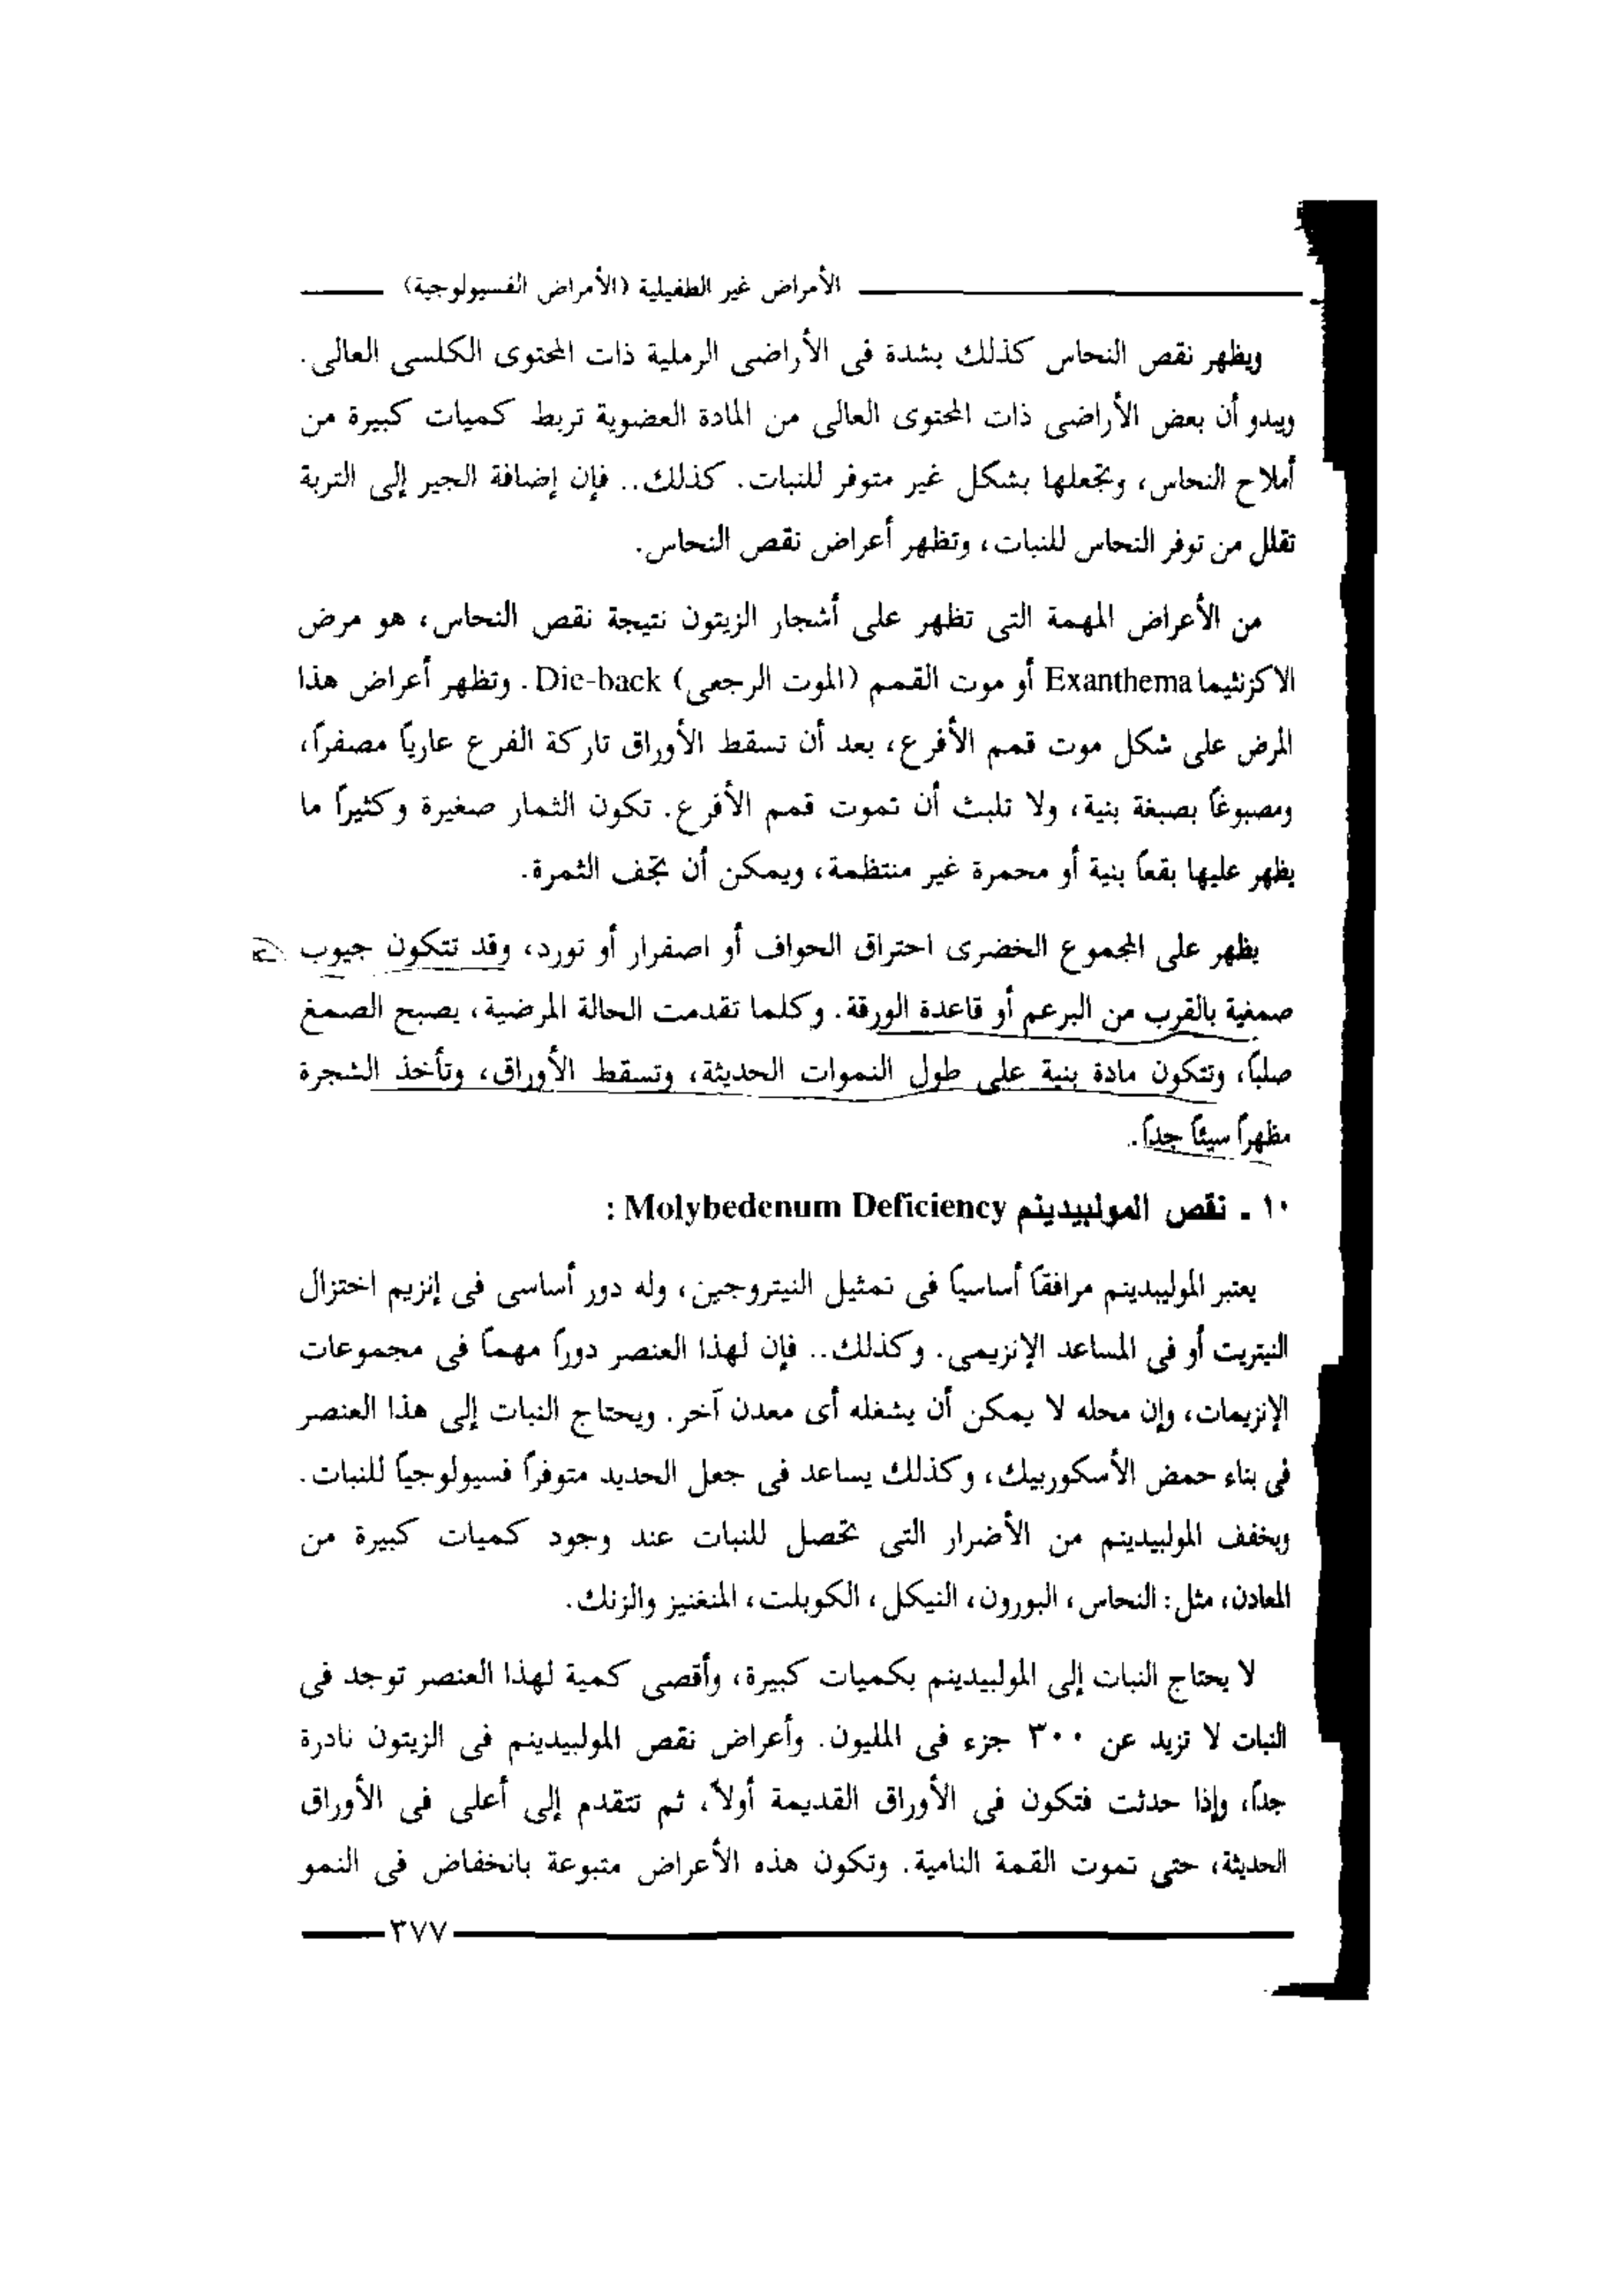 الأمراض غير الطفيلية (الأمراض الفسيولوجية)
ويظهر نقص النحاس كذلك بشدة فى الأراضى الرملية ذات المحتوى الكلسى العالى.
ويبدو أن بعض الأراضى ذات المحتوى العالى من المادة العضوية تربط كميات كبيرة من
أملاح النحاس، وتجعلها بشكل غير متوفر للنبات. كذلك.. فإن إضافة الجير إلى التربة
تقلل من توفر النحاس للنبات، وتظهر أعراض نقص النحاس.
من الأعراض المهمة التى تظهر على أشجار الزيتون نتيجة نقص النحاس، هو مرض
الاكزنثيما Exanthema أو موت القمم (الموت الرجعى) Die-back. وتظهر أعراض هذا
المرض على شكل موت قمم الأفرع، بعد أن تسقط الأوراق تاركة الفرع عارياً مصفراً،
ومصبوغاً بصبغة بنية، ولا تلبث أن تموت قمم الأفرع. تكون الثمار صغيرة وكثيراً ما
يظهر عليها بقعاً بنية أو محمرة غير منتظمة، ويمكن أن تجف الثمرة.
يظهر على المجموع الخضرى احتراق الحواف أو اصفرار أو تورد، وقد تتكون جيوب
صمغية بالقرب من البرعم أو قاعدة الورقة. وكلما تقدمت الحالة المرضية، يصبح الصمغ
صلباً، وتتكون مادة بنية على طول النموات الحديثة، وتسقط الأوراق، وتأخذ الشجرة
مظهراً سيئاً جداً.
١٠ ـ نقص المولبيدينم Molybedenum Deficiency :
يعتبر الموليبدينم مرافقاً أساسياً فى تمثيل النيتروجين، وله دور أساسى فى إنزيم اختزال
النيتريت أو فى المساعد الإنزيمى. وكذلك.. فإن لهذا العنصر دوراً مهماً فى مجموعات
الإنزيمات، وإن محله لا يمكن أن يشغله أى معدن آخر. ويحتاج النبات إلى هذا العنصر
فى بناء حمض الأسكوربيك، وكذلك يساعد فى جعل الحديد متوفراً فسيولوجياً للنبات.
ويخفف المولبيدينم من الأضرار التى تحصل للنبات عند وجود كميات كبيرة من
المعادن، مثل: النحاس، البورون، النيكل، الكوبلت، المنغنيز والزنك.
لا يحتاج النبات إلى المولبيدينم بكميات كبيرة، وأقصى كمية لهذا العنصر توجد فى
النبات لا تزيد عن ٣٠٠ جزء فى المليون. وأعراض نقص المولبيدينم فى الزيتون نادرة
جداً، وإذا حدثت فتكون فى الأوراق القديمة أولاً، ثم تتقدم إلى أعلى فى الأوراق
الحديثة، حتى تموت القمة النامية. وتكون هذه الأعراض متبوعة بانخفاض فى النمو
٣٧٧